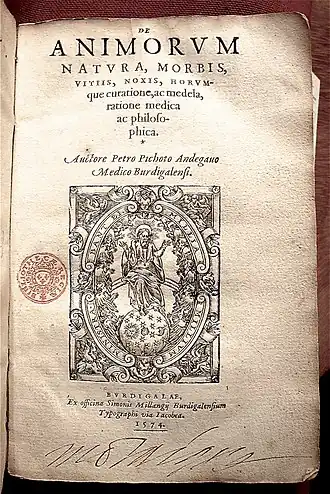 DE
ANIMORVM
NATVRA, MORBIS,
VITIIS, NOXIS, HORVM-
que curatione, ac medela,
ratione medica
ac philoso-
phica.
*
Auctore Petro Pichoto Andegauo
Medico Burdigalensi.
BVRDIGALAE,
Ex officina Simonis Millangij Burdigalensium
Typographi via Iacobea.
1574.